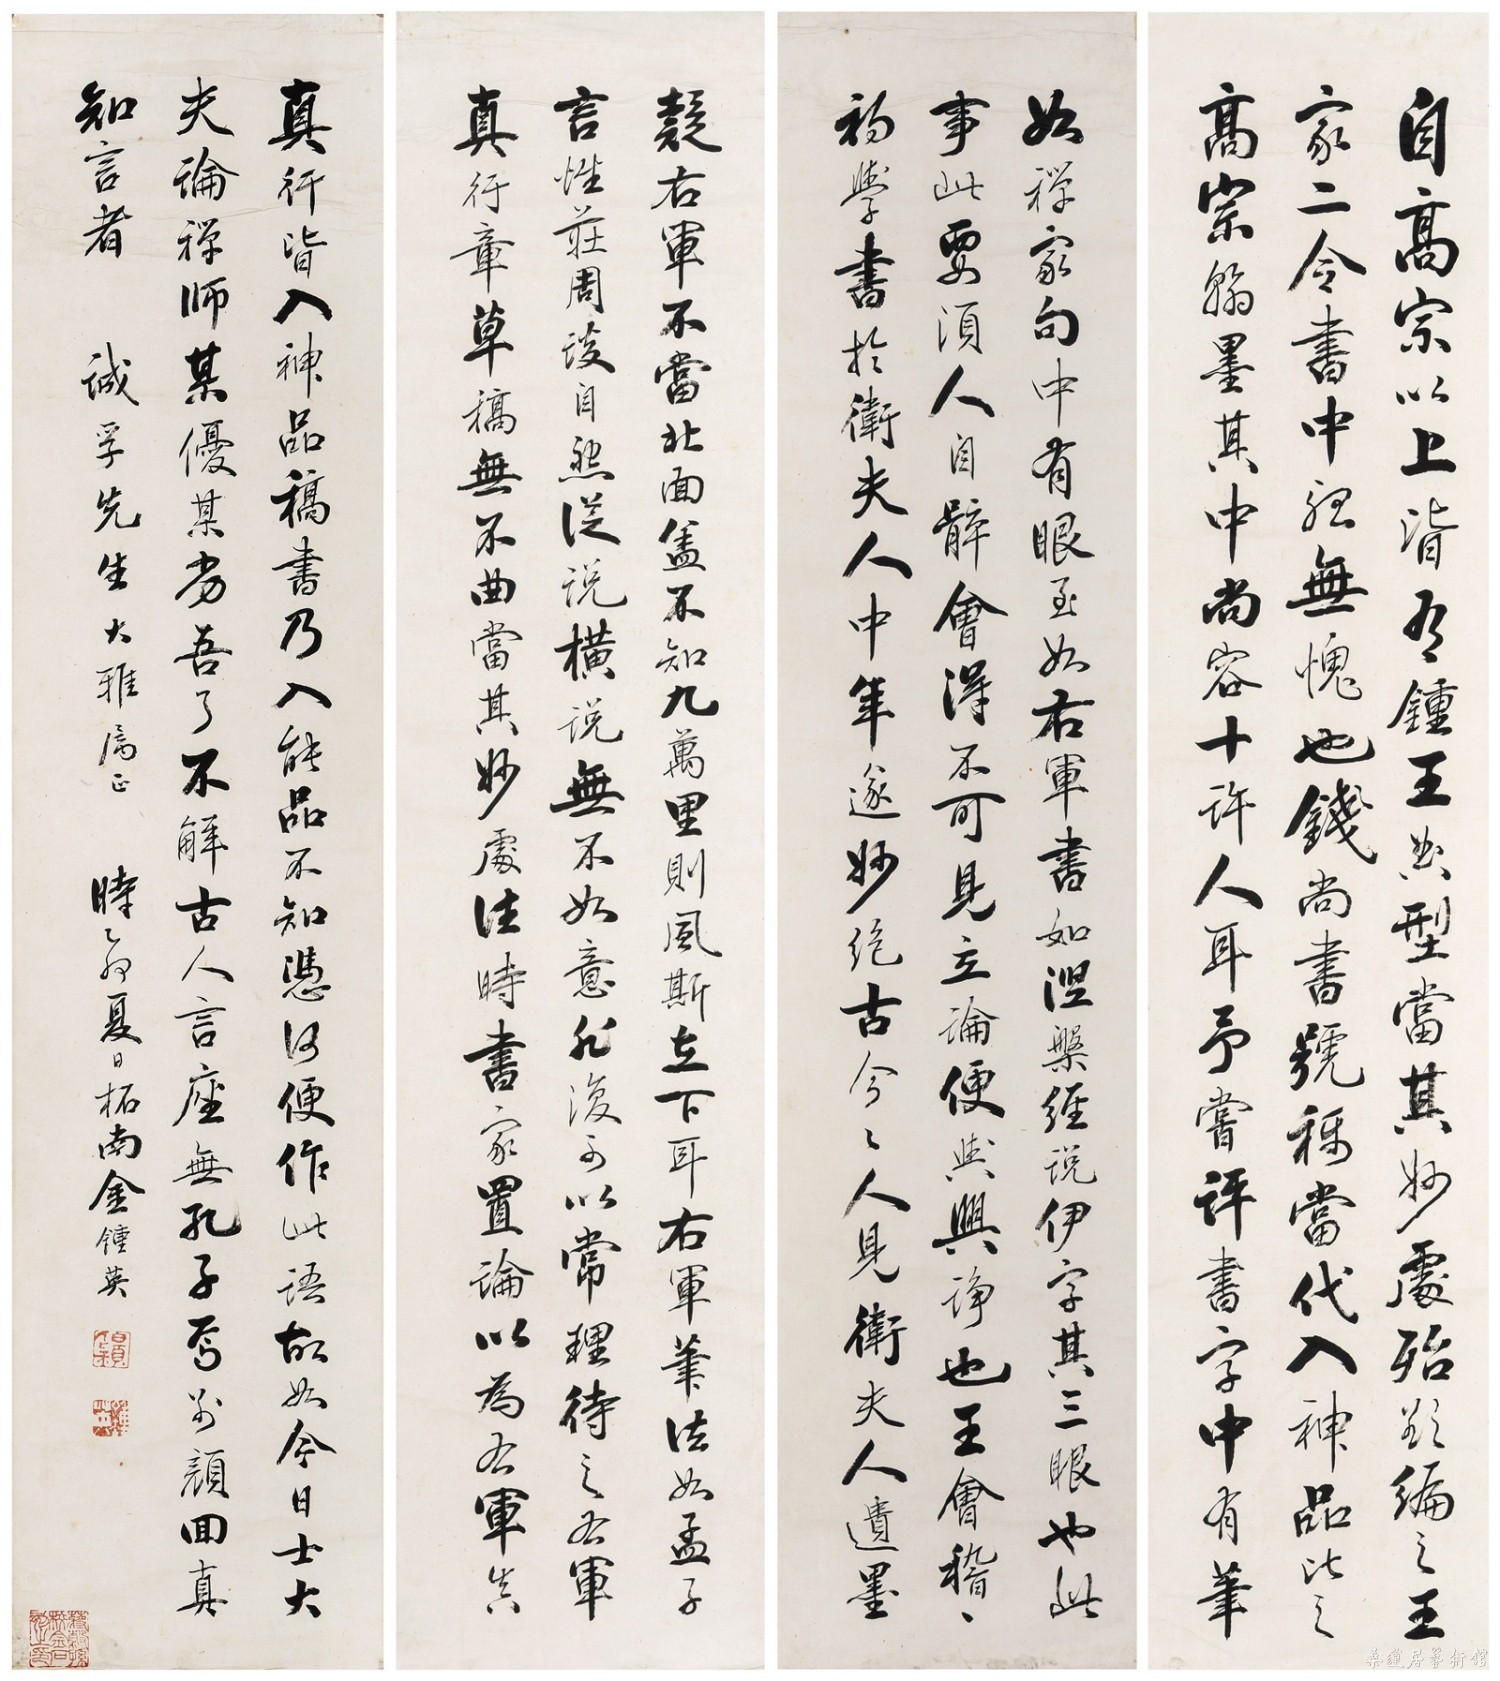 自高宗以上皆有鍾王典型當其妙處殆欲編之王
家二令書中了無愧也錢尚書號稱當代入神品比之
高宗翰墨其中尚容十許人耳予嘗評書字中有筆
如禪家句中有眼至如右軍書如涅槃經說伊字其三眼也此
事此要須人自體會得不可見立論便與興諍也王會稽
初學書於衛夫人中年遂妙絕古今今人見衛夫人遺墨
疑右軍不當北面蓋不知九萬里則風斯在下耳右軍筆法如孟子
言性莊周談自然從說橫說無不如意非復可以常理待之右軍
真行章草稿無不曲當其妙處往時書家置論以為右軍真
真行皆入神品稿書乃入能品不知憑何便作此語故如今日士大
夫論禪師某優某劣吾了不解古人言座無孔子焉別顏回真
知言者 誠孚先生大雅屬正 時乙卯夏日柘南金鍾英
桑蓮居藝術館